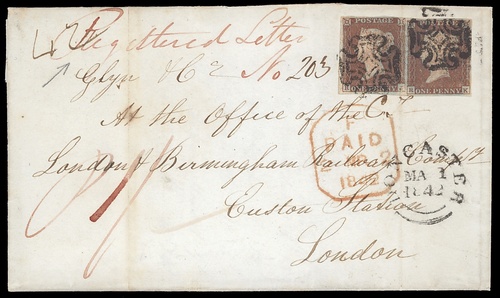 Registered Letter
Glyn & Co No 203
POSTAGE POSTAGE
ONE PENNY ONE PENNY
At the Office of the
London & Birmingham Railway Comp
Euston Station
London
PAID
1842
LANCASTER
MA 1
1842